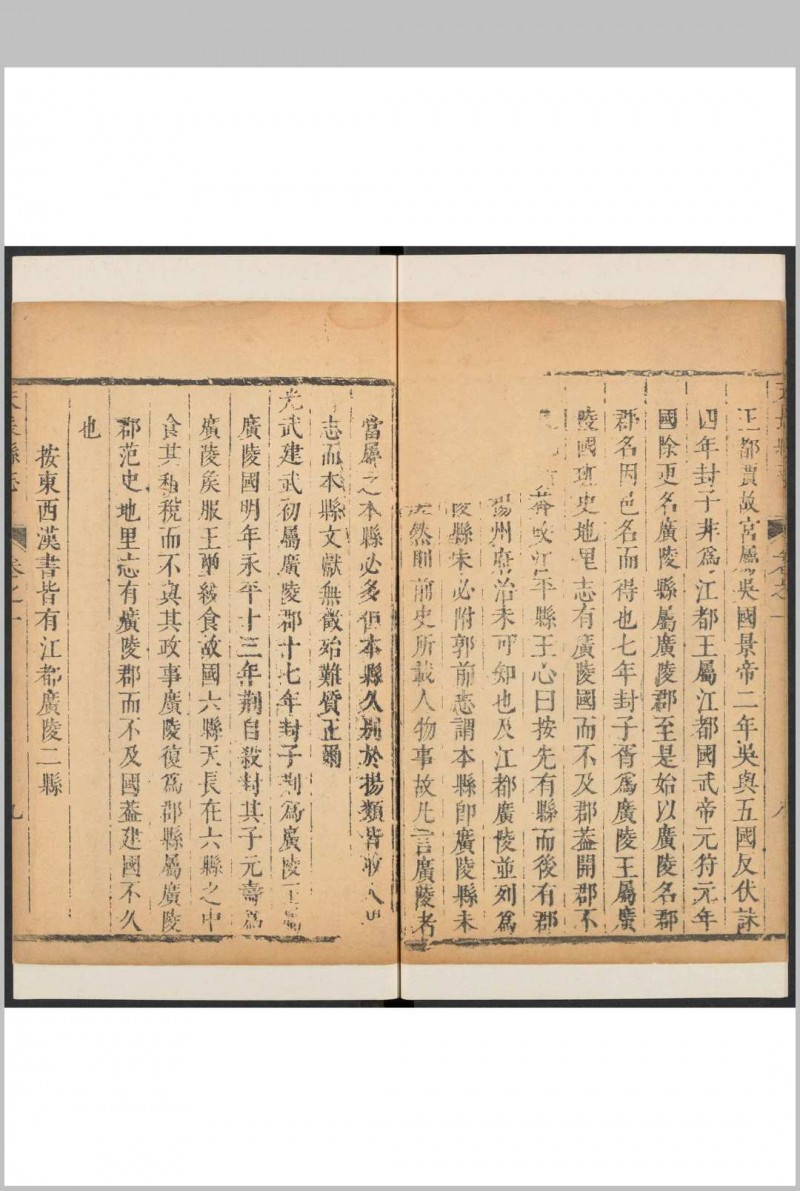 王都賈故宮屬吳國景帝二年吳與五國反伏誅
四年封子非爲江都王屬江都國武帝元狩元年
國除更名廣陵縣屬廣陵郡至是始以廣陵名郡
郡名因邑名而得也七年封子胥爲廣陵王屬廣
陵國班史地里志有廣陵國而不及郡葢開郡不
江平縣王心曰按先有縣而後有郡
揚州府治未可知也及江都廣陵並列爲
陵縣未必附郭前志謂本縣即廣陵縣未
然則前史所載人物事故凡言廣陵者
當屬之本縣必多但本縣久别於揚類皆
志而本縣文獻無徵殆難質正爾
光武建武初屬廣陵郡十七年封子荆爲廣陵王屬
廣陵國明年永平十三年荆自殺封其子元壽爲
廣陵矦服王璽綬食故國六縣天長在六縣之中
食其租稅而不與其政事廣陵復爲郡縣屬廣陵
郡范史地里志有廣陵郡而不及國葢建國不久
也
按東西漢書皆有江都廣陵二縣
天長縣志
卷之一
九